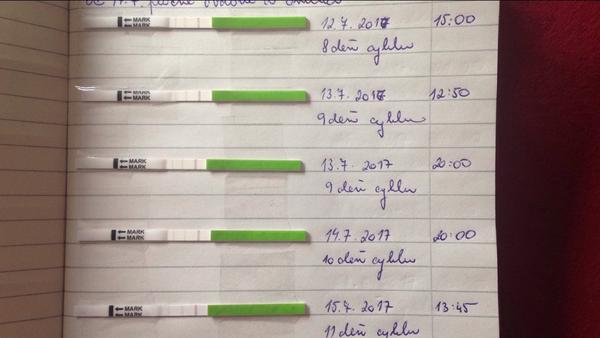 MARK
MARK
12.7.2017 15:00
8 deň cyklu
MARK
MARK
13.7.2017 12:50
9 deň cyklu
MARK
MARK
13.7.2017 20:00
9 deň cyklu
MARK
MARK
14.7.2017 20:00
10 deň cyklu
MARK
MARK
15.7.2017 13:45
11 deň cyklu